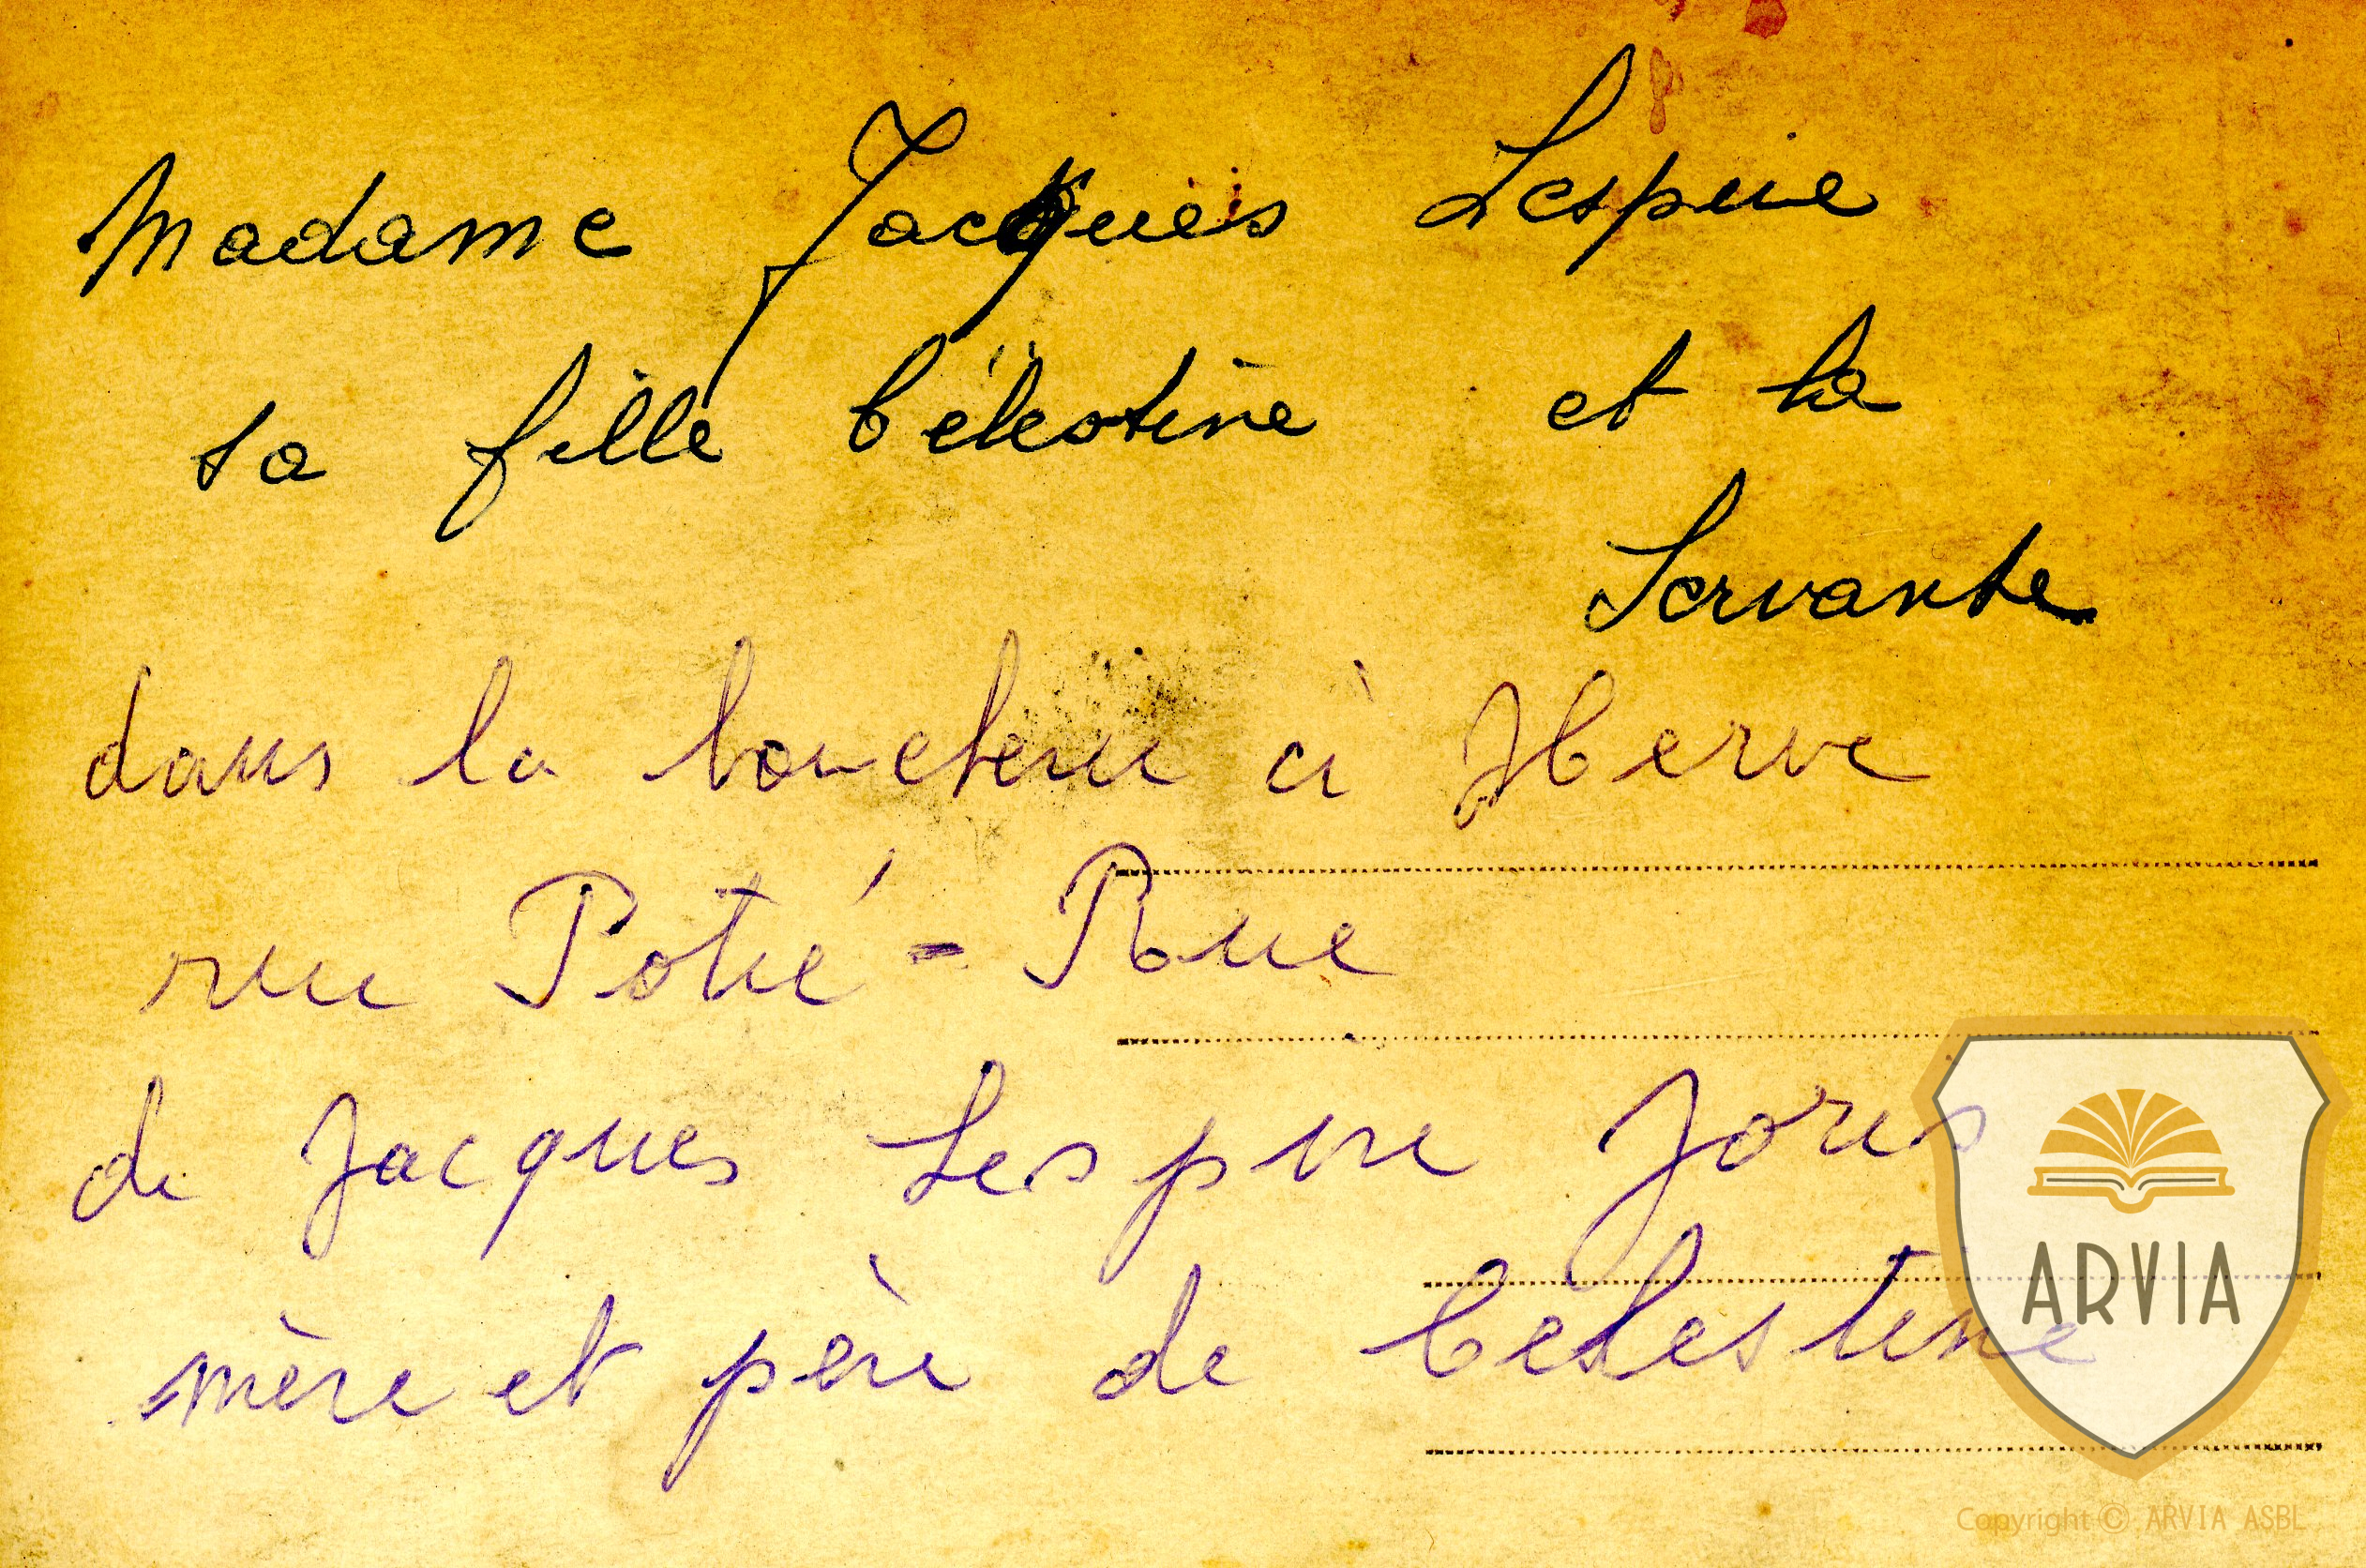 Madame Jacques Lespire
sa fille Célestine et la
Servante
dans la boucherie à Herve
rue Potié-Rue
de Jacques Lespire Joris
mère et père de Célestine
ARVIA
Copyright © ARVIA ASBL